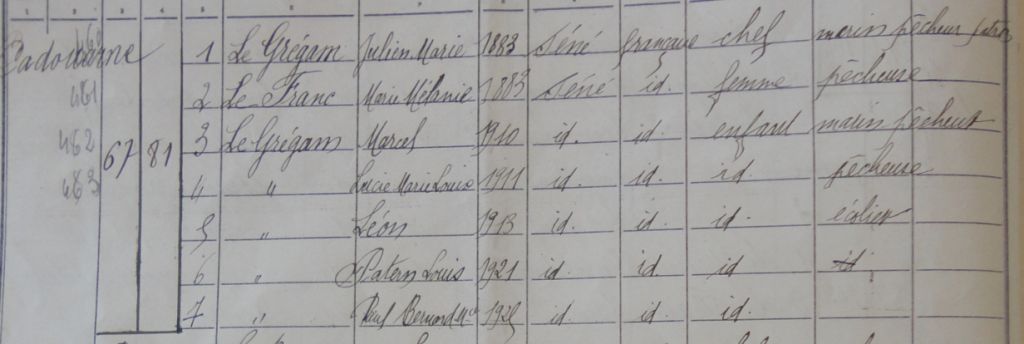 Cadouarne 1 Le Grégam Julien Marie 1883 Séné française chef marin pêcheur patron
461 2 Le Franc Marie Mélanie 1883 Séné id. femme pêcheuse
462 67 81 3 Le Grégam Marcel 1910 id. id. enfant marin pêcheur
463 4 " Lucie Marie Louise 1911 id. id. id pêcheuse
5 " Léon 1913 id. id. id. écolier
6 " Patern Louis 1921 id id id id
7 " Paul id. id id.